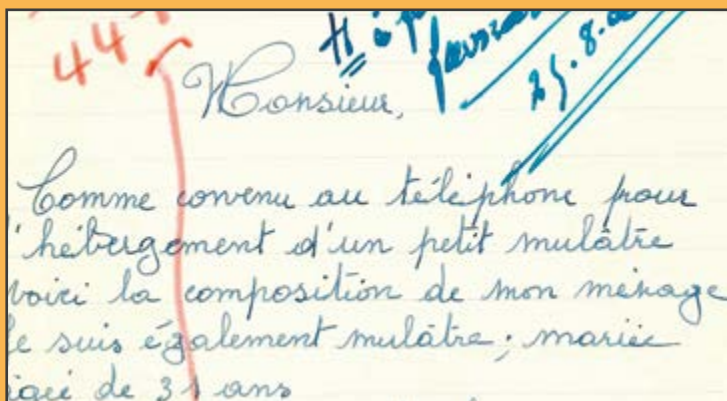 44
H à
25.8.60
Monsieur,
Comme convenu au téléphone pour
l'hébergement d'un petit mulâtre
voici la composition de mon ménage
Je suis également mulâtre; mariée
âgée de 31 ans